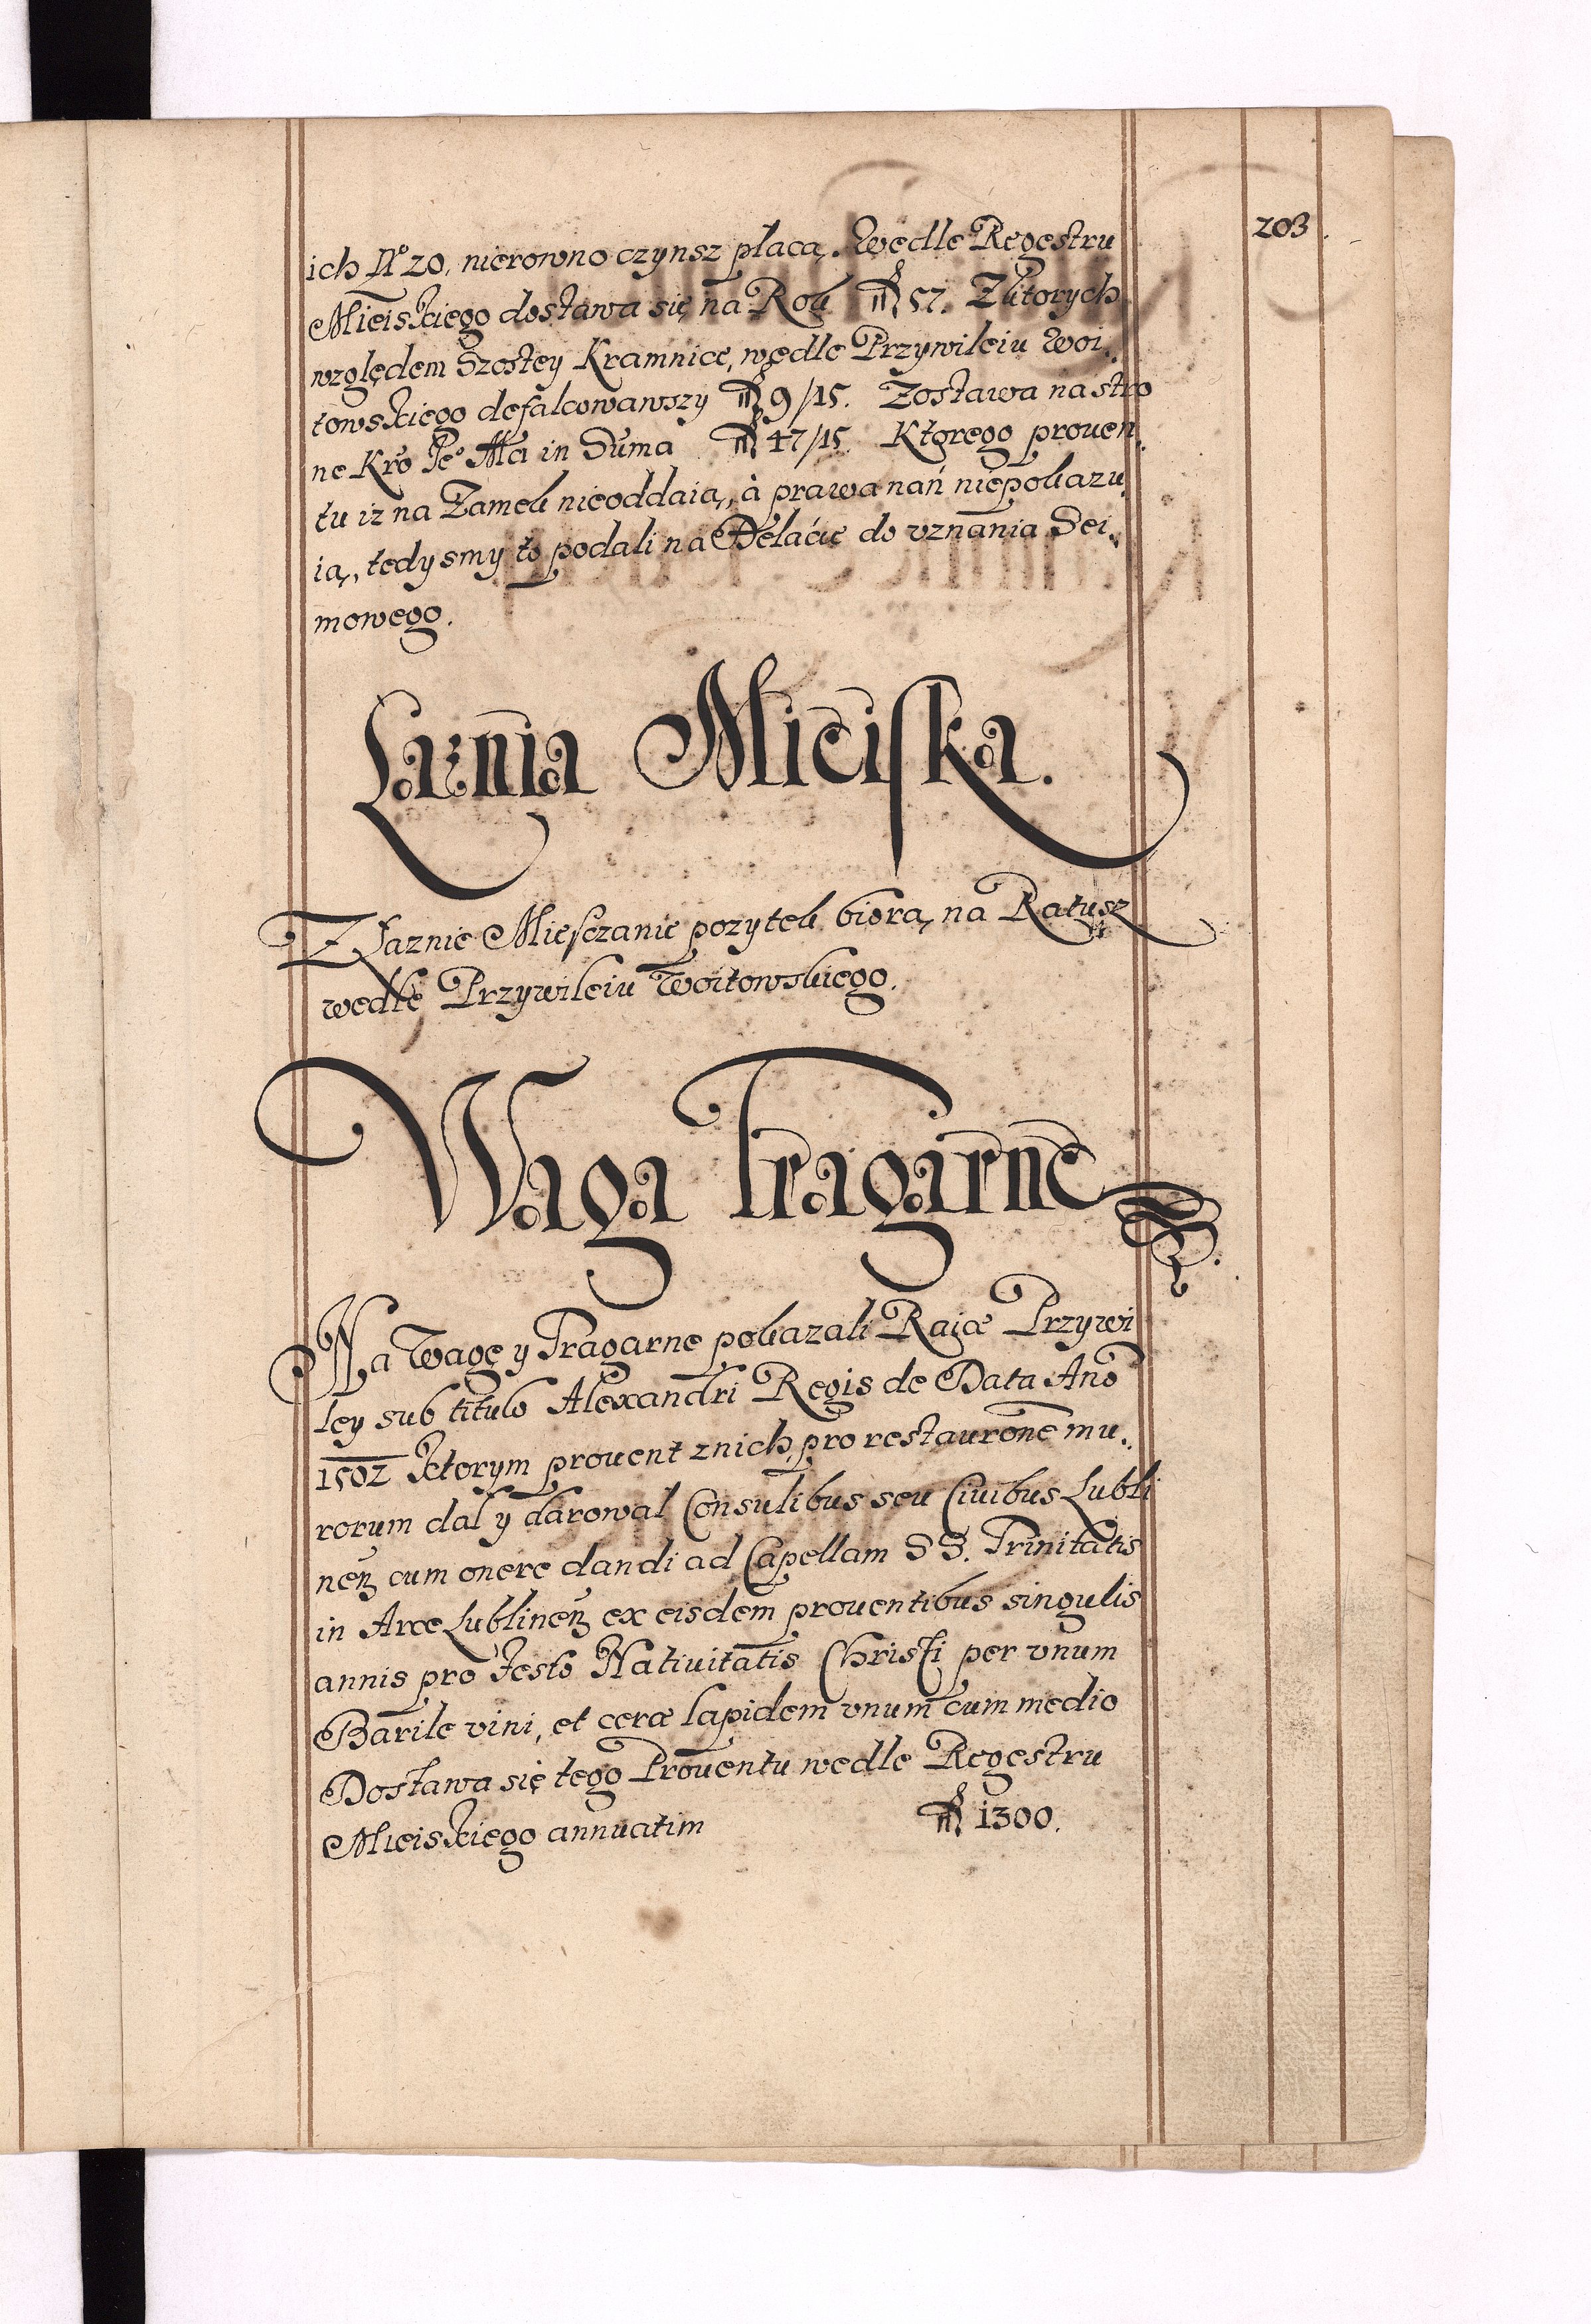 203.
ich No 20, nierowno czynsz płacą. Wedle Regestru
Mieiskiego dostawa się na Rok fl 57. Z ktorych
względem Szostey Kramnice, wedle Przywileiu Woi„
towskiego defalcowawszy fl 9/15. Zostawa na stro
ne Kro Jeo Mci in Suma fl 47/15. Ktorego prouen„
tu iz na Zamek nieoddaią, à prawa nań niepokazu„
ią, tedysmy to podali na Delácię do vznania Sei„
mowego.
Łaznia Mieiska.
Z Łaznie Miesczanie pozytek biorą na Ratusz
wedle Przywileiu Woitowskiego.
Waga Tragarne
Na Wagę y Tragarne pokazali Raice Przywi
ley sub titulo Alexandri Regis de Data Ano
1502 Ktorym prouent znich pro restaurone mu„
rorum dał y darował Consulibus seu Ciuibus Lubli
nen cum onere dandi ad Capellam SS. Trinitatis
in Arce Lublinen ex eisdem prouentibus singulis
annis pro festo Natiuitatis Christi per vnum
Barile vini, et ceræ lapidem vnum cum medio
Dostawa się tego Prouentu wedle Regestru
Mieiskiego annuatim fl 1300.